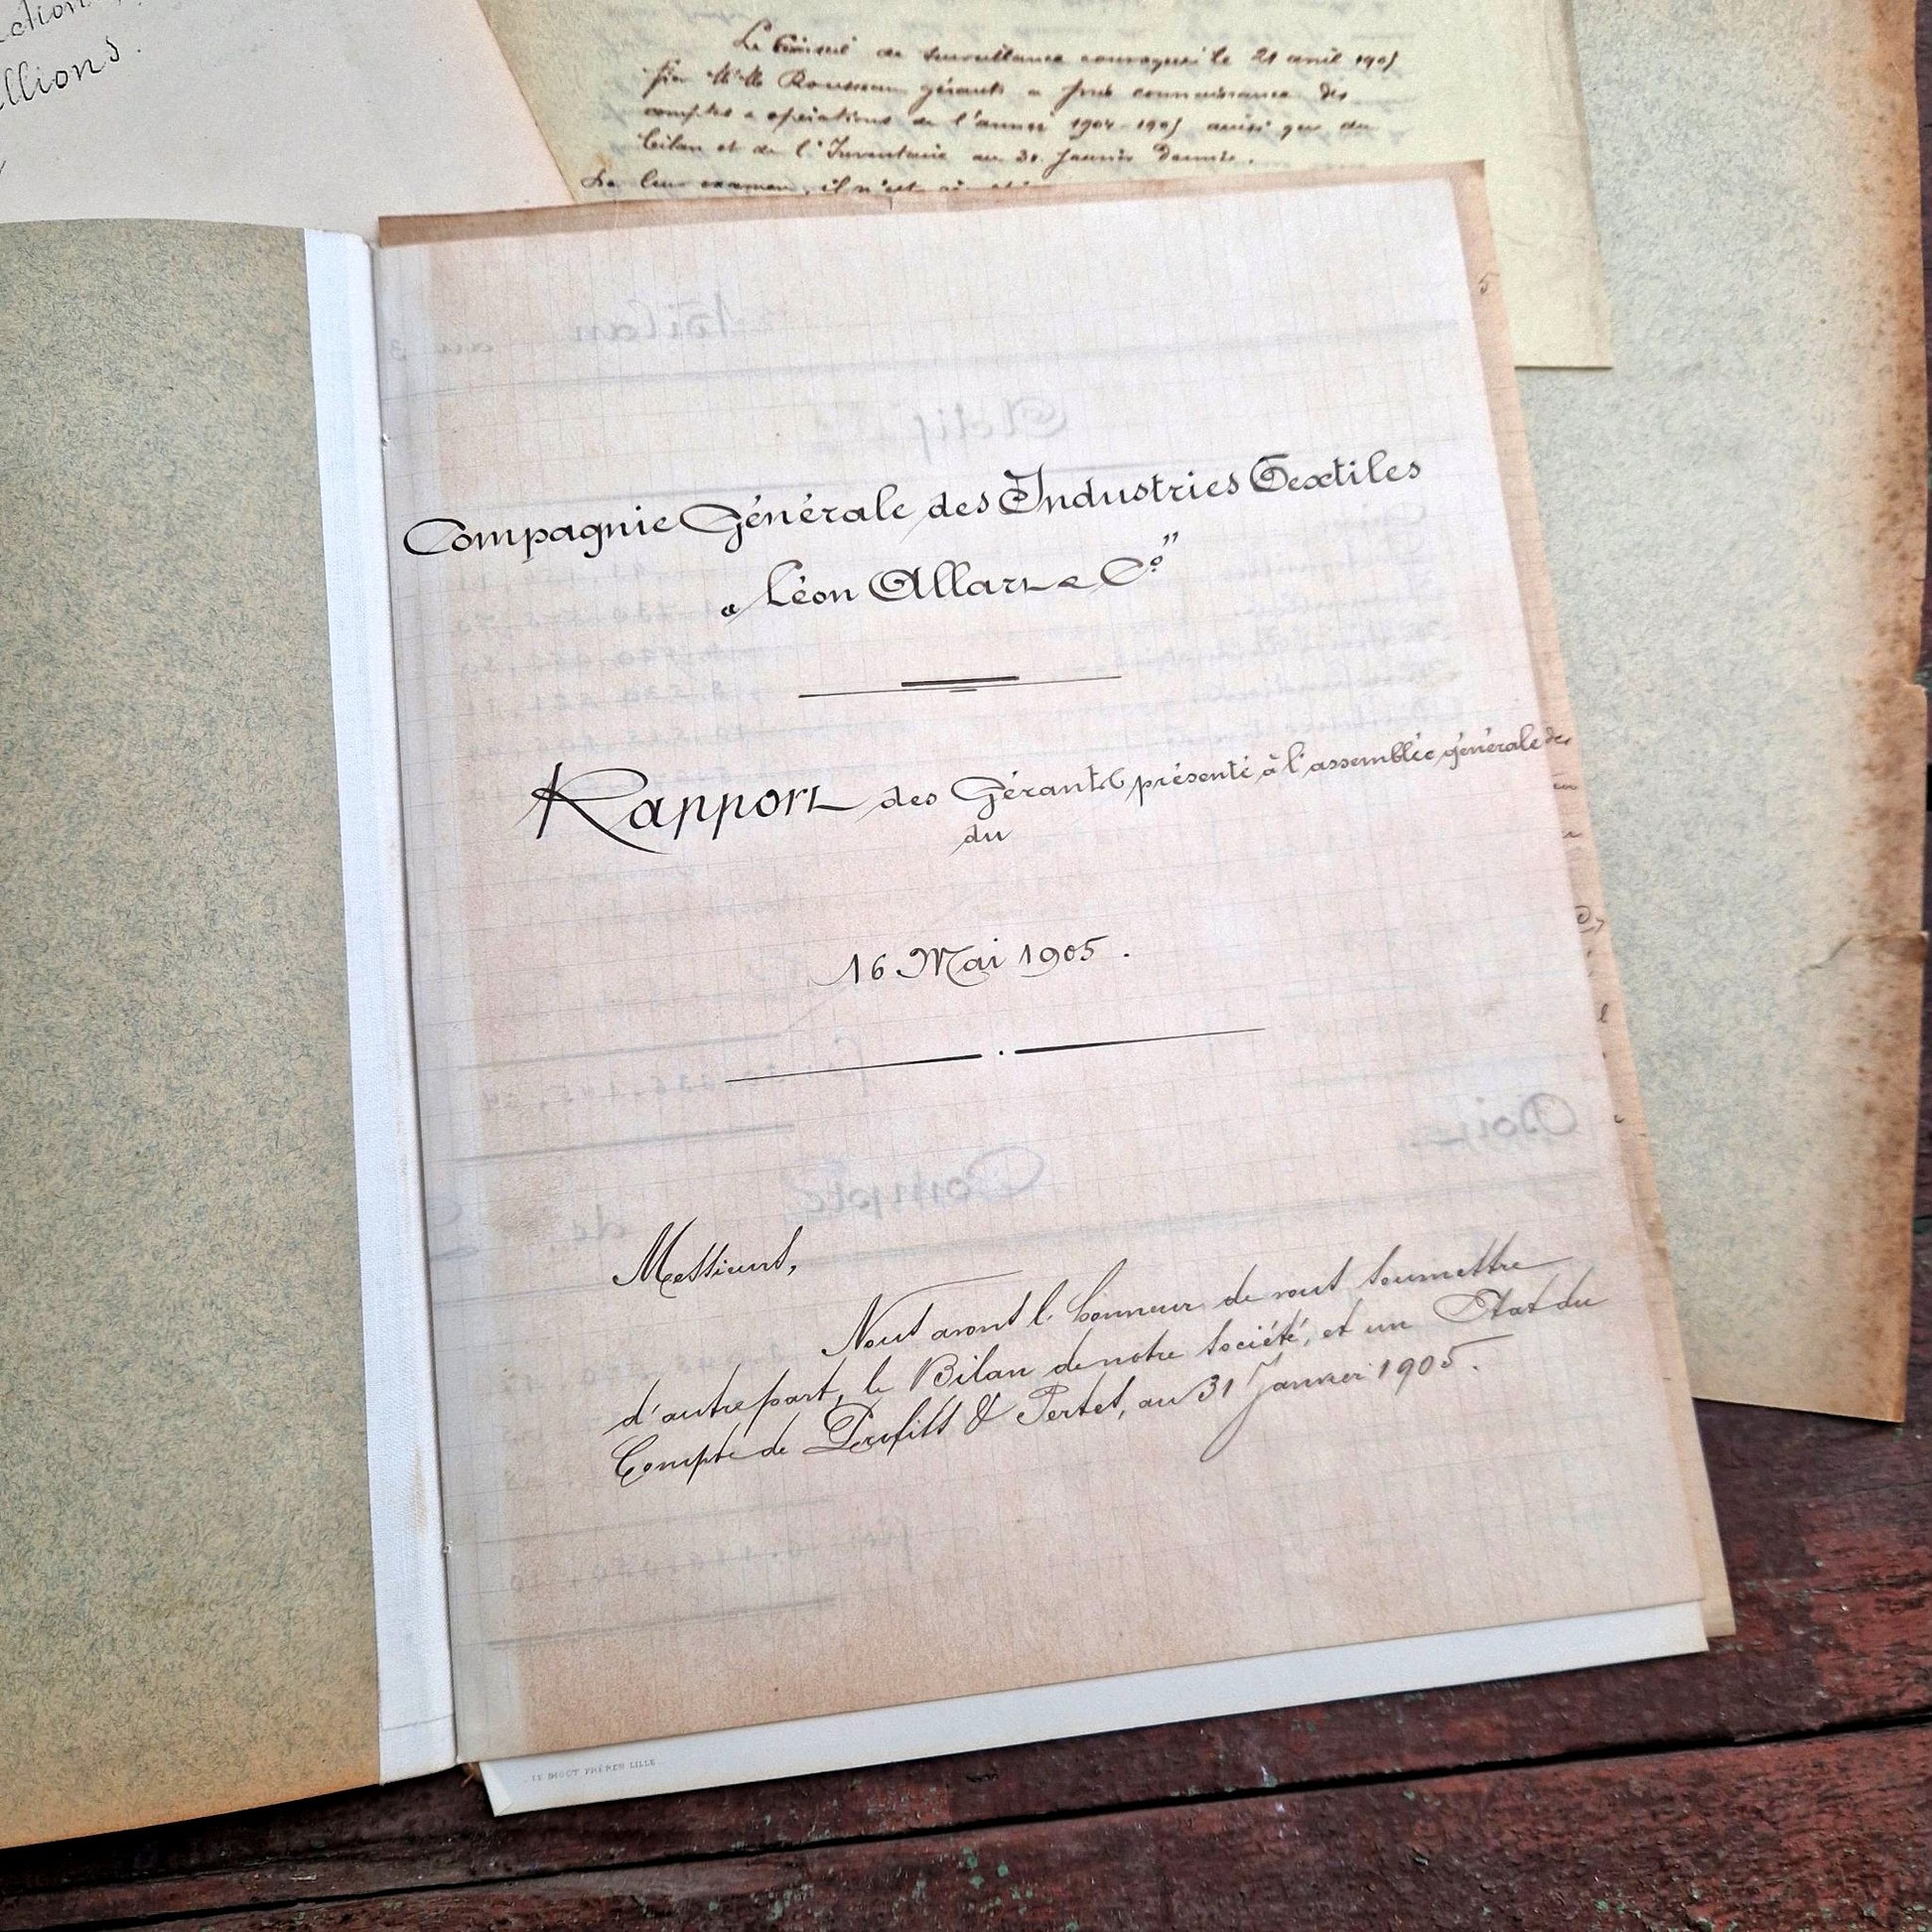 ction
llions.
Le Conseil de Surveillance convoqué le 21 avril 1905
par M. M. Rousseau gérants a pris connaissance des
comptes & opérations de l'année 1904-1905 ainsi que du
bilan et de l'Inventaire au 31 Janvier dernier.
De leur examen, il n'est
5
Compagnie Générale des Industries Textiles
"Léon Allart & Co"
Rapport des Gérants présenté à l'assemblée générale des
du
16 Mai 1905.
Messieurs,
Nous avons l'honneur de vous soumettre
d'autre part, le Bilan de notre Société, et un Etat du
Compte de Profits & Pertes, au 31 Janvier 1905.
LE BIGOT FRÈRES LILLE
Bilan au 3
Actif
Doit
Compte de